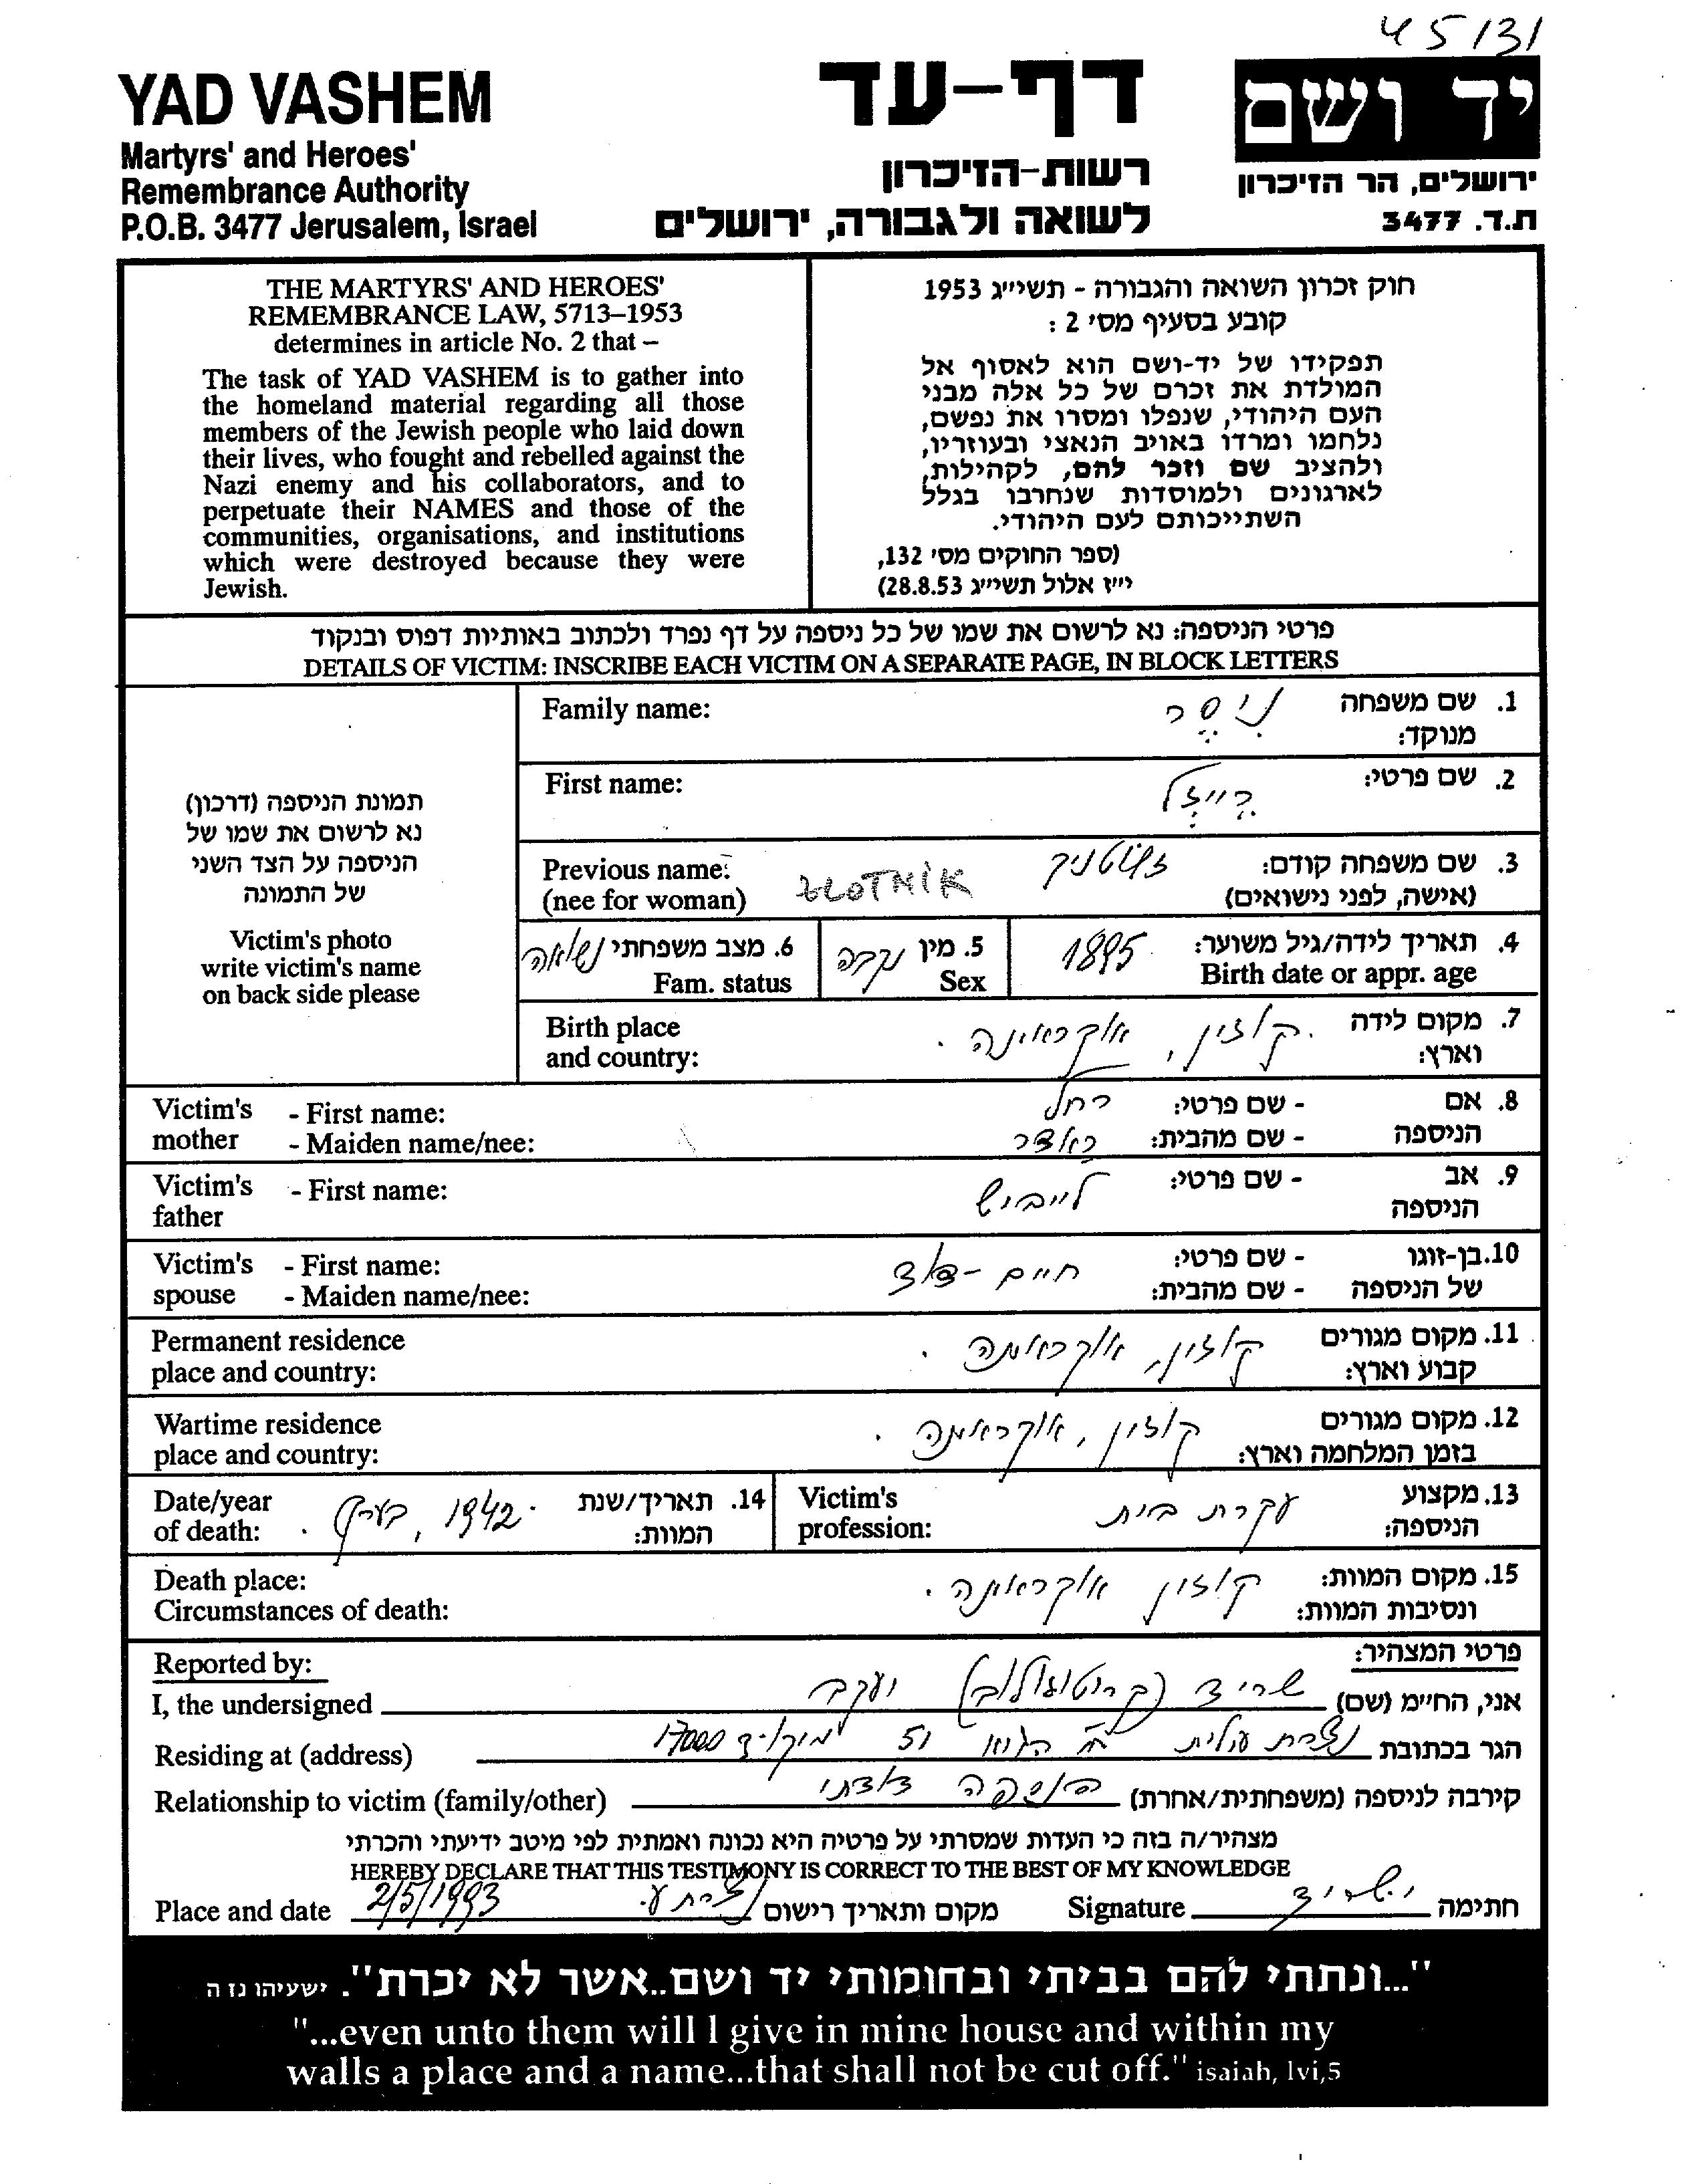 45131
YAD VASHEM
Martyrs' and Heroes'
Remembrance Authority
P.O.B. 3477 Jerusalem, Israel
דף-עד
רשות-הזיכרון
לשואה ולגבורה, ירושלים
יד ושם
ירושלים, הר הזיכרון
ת.ד. 3477
THE MARTYRS' AND HEROES'
REMEMBRANCE LAW, 5713–1953
determines in article No. 2 that –
The task of YAD VASHEM is to gather into
the homeland material regarding all those
members of the Jewish people who laid down
their lives, who fought and rebelled against the
Nazi enemy and his collaborators, and to
perpetuate their NAMES and those of the
communities, organisations, and institutions
which were destroyed because they were
Jewish.
חוק זכרון השואה והגבורה - תשי״ג 1953
קובע בסעיף מס׳ 2 :
תפקידו של יד-ושם הוא לאסוף אל
המולדת את זכרם של כל אלה מבני
העם היהודי, שנפלו ומסרו את נפשם,
נלחמו ומרדו באויב הנאצי ובעוזריו,
ולהציב שם וזכר להם, לקהילות,
לארגונים ולמוסדות שנחרבו בגלל
השתייכותם לעם היהודי.
(ספר החוקים מס׳ 132,
י״ז אלול תשי״ג 28.8.53)
פרטי הניספה: נא לרשום את שמו של כל ניספה על דף נפרד ולכתוב באותיות דפוס ובנקוד
DETAILS OF VICTIM: INSCRIBE EACH VICTIM ON A SEPARATE PAGE, IN BLOCK LETTERS
תמונת הניספה (דרכון)
נא לרשום את שמו של
הניספה על הצד השני
של התמונה
Victim's photo
write victim's name
on back side please
1. שם משפחה מנוקד: ניסר Family name:
2. שם פרטי: רייזל First name:
3. שם משפחה קודם: זלוטניק ZŁOTNIK Previous name:
(אישה, לפני נישואים) (nee for woman)
4. תאריך לידה/גיל משוער: 1895 Birth date or appr. age
5. מין נקבה Sex
6. מצב משפחתי נשואה Fam. status
7. מקום לידה וארץ: קוזין, אוקראינה. Birth place and country:
8. אם הניספה - שם פרטי: רחל Victim's mother - First name:
- שם מהבית: - Maiden name/nee:
9. אב הניספה - שם פרטי: לייביש Victim's father - First name:
10. בן-זוגו של הניספה - שם פרטי: חיים- Victim's spouse - First name:
- שם מהבית: - Maiden name/nee:
11. מקום מגורים קבוע וארץ: קוזין, אוקראינה. Permanent residence place and country:
12. מקום מגורים בזמן המלחמה וארץ: קוזין, אוקראינה. Wartime residence place and country:
13. מקצוע הניספה: עקרת בית Victim's profession:
14. תאריך/שנת המוות: 1942, בערך. Date/year of death:
15. מקום המוות: קוזין אוקראינה. Death place:
ונסיבות המוות: Circumstances of death:
פרטי המצהיר: Reported by:
אני, החי״מ (שם) שריד יעקב I, the undersigned
הגר בכתובת נצרת עילית 51 מיקוד 17000 Residing at (address)
קירבה לניספה (משפחתית/אחרת) דודתי Relationship to victim (family/other)
מצהיר/ה בזה כי העדות שמסרתי על פרטיה היא נכונה ואמתית לפי מיטב ידיעתי והכרתי
HEREBY DECLARE THAT THIS TESTIMONY IS CORRECT TO THE BEST OF MY KNOWLEDGE
Place and date 2/5/1993 נצרת ע. מקום ותאריך רישום Signature י. שריד חתימה
"...ונתתי להם בביתי ובחומותי יד ושם..אשר לא יכרת". ישעיהו נז ה
"...even unto them will I give in mine house and within my
walls a place and a name...that shall not be cut off." isaiah, lvi,5